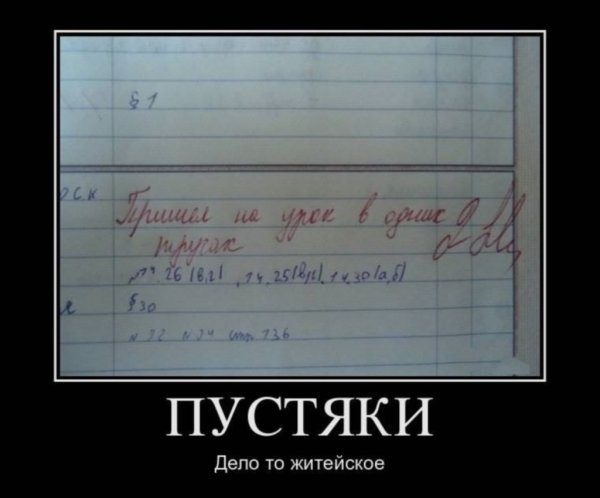 § 1
Пришел на урок в одних
трусах
№14.26 (в,г), 14.25(в,г), 14.30(а,б)
§30
№32 №34 стр. 136
ПУСТЯКИ
Дело то житейское